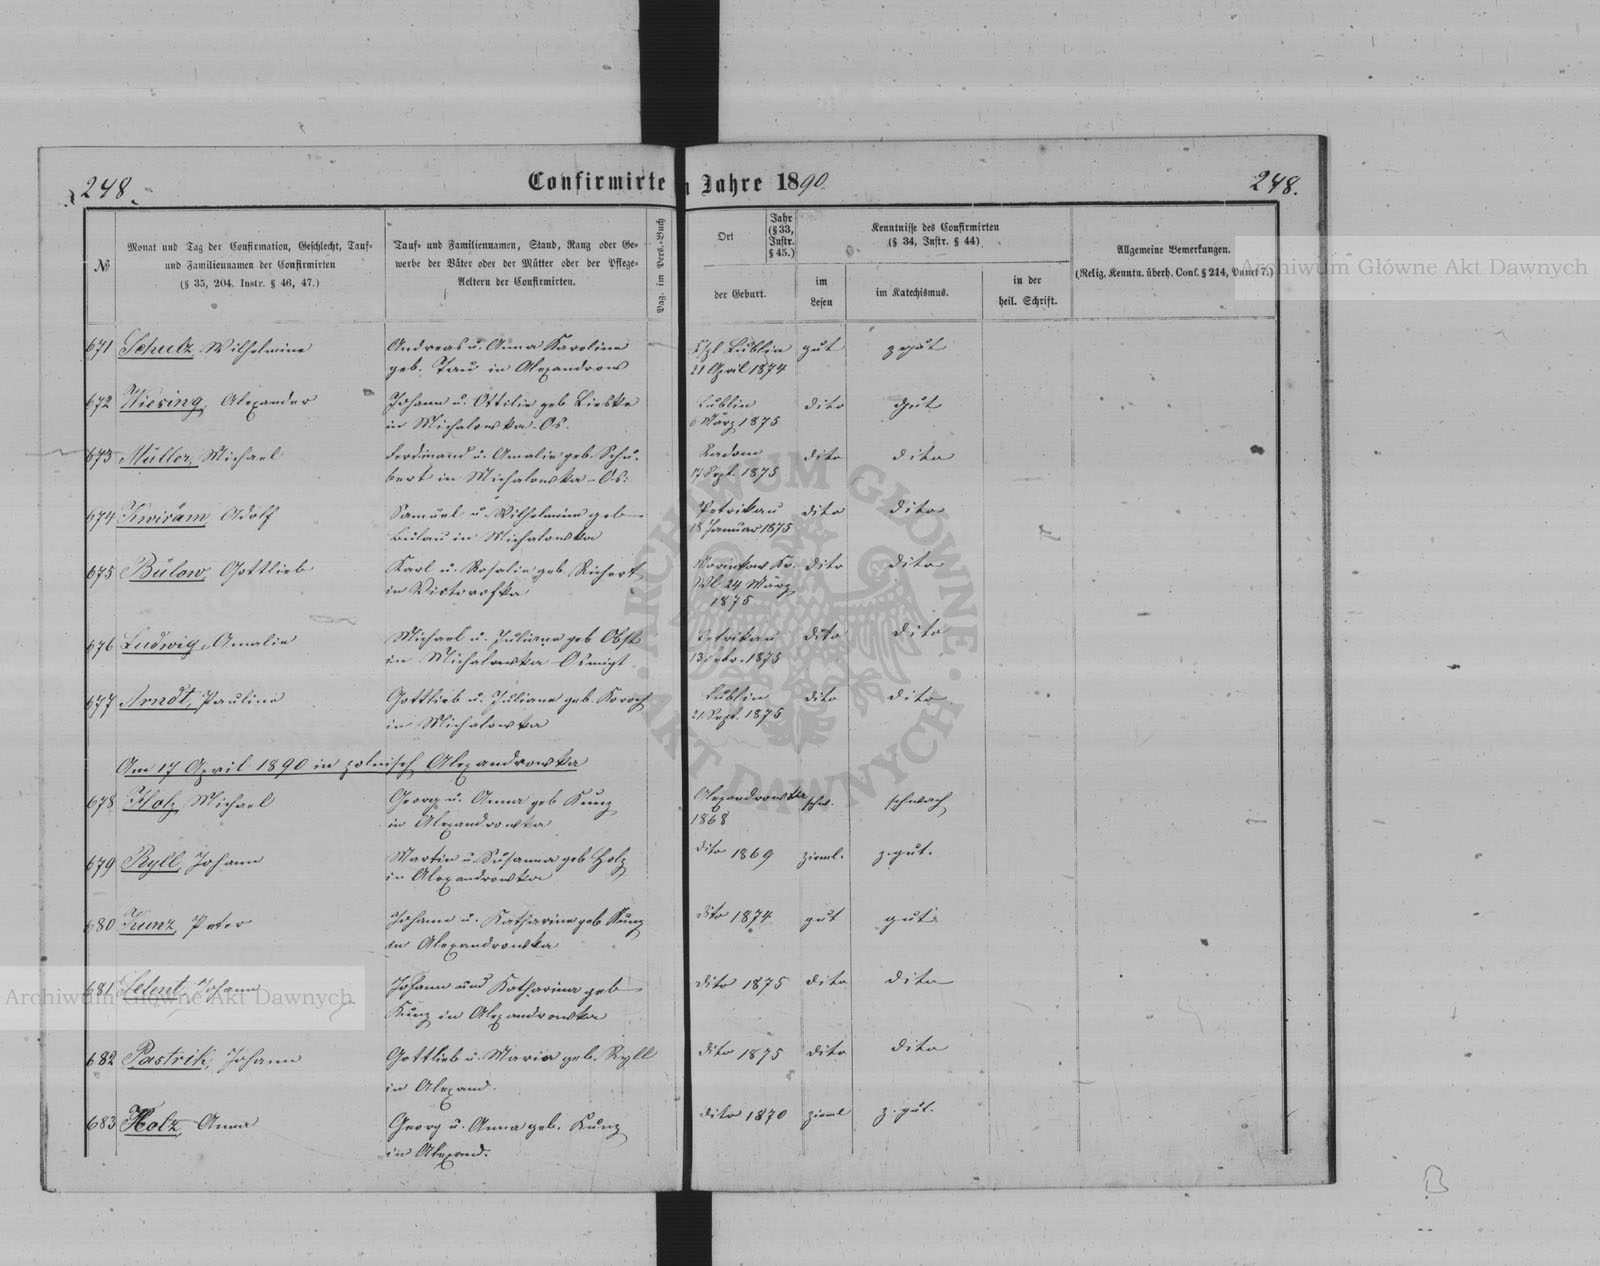 248.
Confirmirte
n Jahre 1890
248.
№
Monat und Tag der Confirmation, Geschlecht, Tauf-
und Familiennamen der Confirmirten
(§ 35, 204. Instr. § 46, 47.)
Tauf- und Familiennamen, Stand, Rang oder Ge-
werbe der Väter oder der Mütter oder der Pflege-
Aeltern der Confirmirten.
Pag. im Pers.-Buch
Ort
Jahr
(§ 33,
Instr.
§ 45.)
der Geburt.
Kenntnisse des Confirmirten
(§ 34, Instr. § 44)
im
Lesen
im Katechismus.
in der
heil. Schrift.
Allgemeine Bemerkungen.
(Relig. Kenntn. überh. Conf. § 214, Punct 7.)
671 Schulz, Wilhelmine
Andreas u. Anna Karoline
geb. Tau in Alexandrow
Lublin
21 April 1874
gut
z gut
672 Wiesing, Alexander
Johann u. Ottilie geb. Lieske
in Michalowka-Os.
Lublin
6 März 1875
dito
gut
673 Müller, Michael
Ferdinand u. Amalie geb. Schu-
bert in Michalowka-Os.
Radom
17 Sept. 1875
dito
dito
674 Kwiram, Adolf
Samuel u. Wilhelmine geb
Bülau in Michalowka
Petrikau
18 Januar 1875
dito
dito
675 Bülow, Gottlieb
Karl u. Rosalie geb. Richert
in
24 März
1875
dito
dito
676 Ludwig, Amalie
Michael u. Juliane geb Obst
in Michalowka Osmigt
Petrikau
1875
dito
dito
677 Arndt, Pauline
Gottlieb u. Juliane geb.
in Michalowka
Lublin
21. Sept. 1875
dito
dito
Am 17 April 1890 in polnisch Alexandrowka
678 Holz, Michael
Georg u. Anna geb Kunz
in Alexandrowka
Alexandrowka
1868
schw.
schwach
679 Ryll, Johann
Martin u. Susanna geb Holz
in Alexandrowka
dito 1869
zieml.
z. gut.
680 Kunz, Peter
Johann u. Katharina geb Kunz
in Alexandrowka
dito 1874
gut
gut
681 Selent, Johann
Johann und Katharina geb
Kunz in Alexandrowka
dito 1875
dito
dito
682 Pastrik, Johann
Gottlieb u. Maria geb. Ryll
in Alexand.
dito 1875
dito
dito
683 Holz, Anna
Georg u. Anna geb. Kunz
in Alexand.
dito 1870
zieml
z. gut.
Archiwum Główne Akt Dawnych
Archiwum Główne Akt Dawnych
ARCHIWUM GŁÓWNE · AKT DAWNYCH ·
B